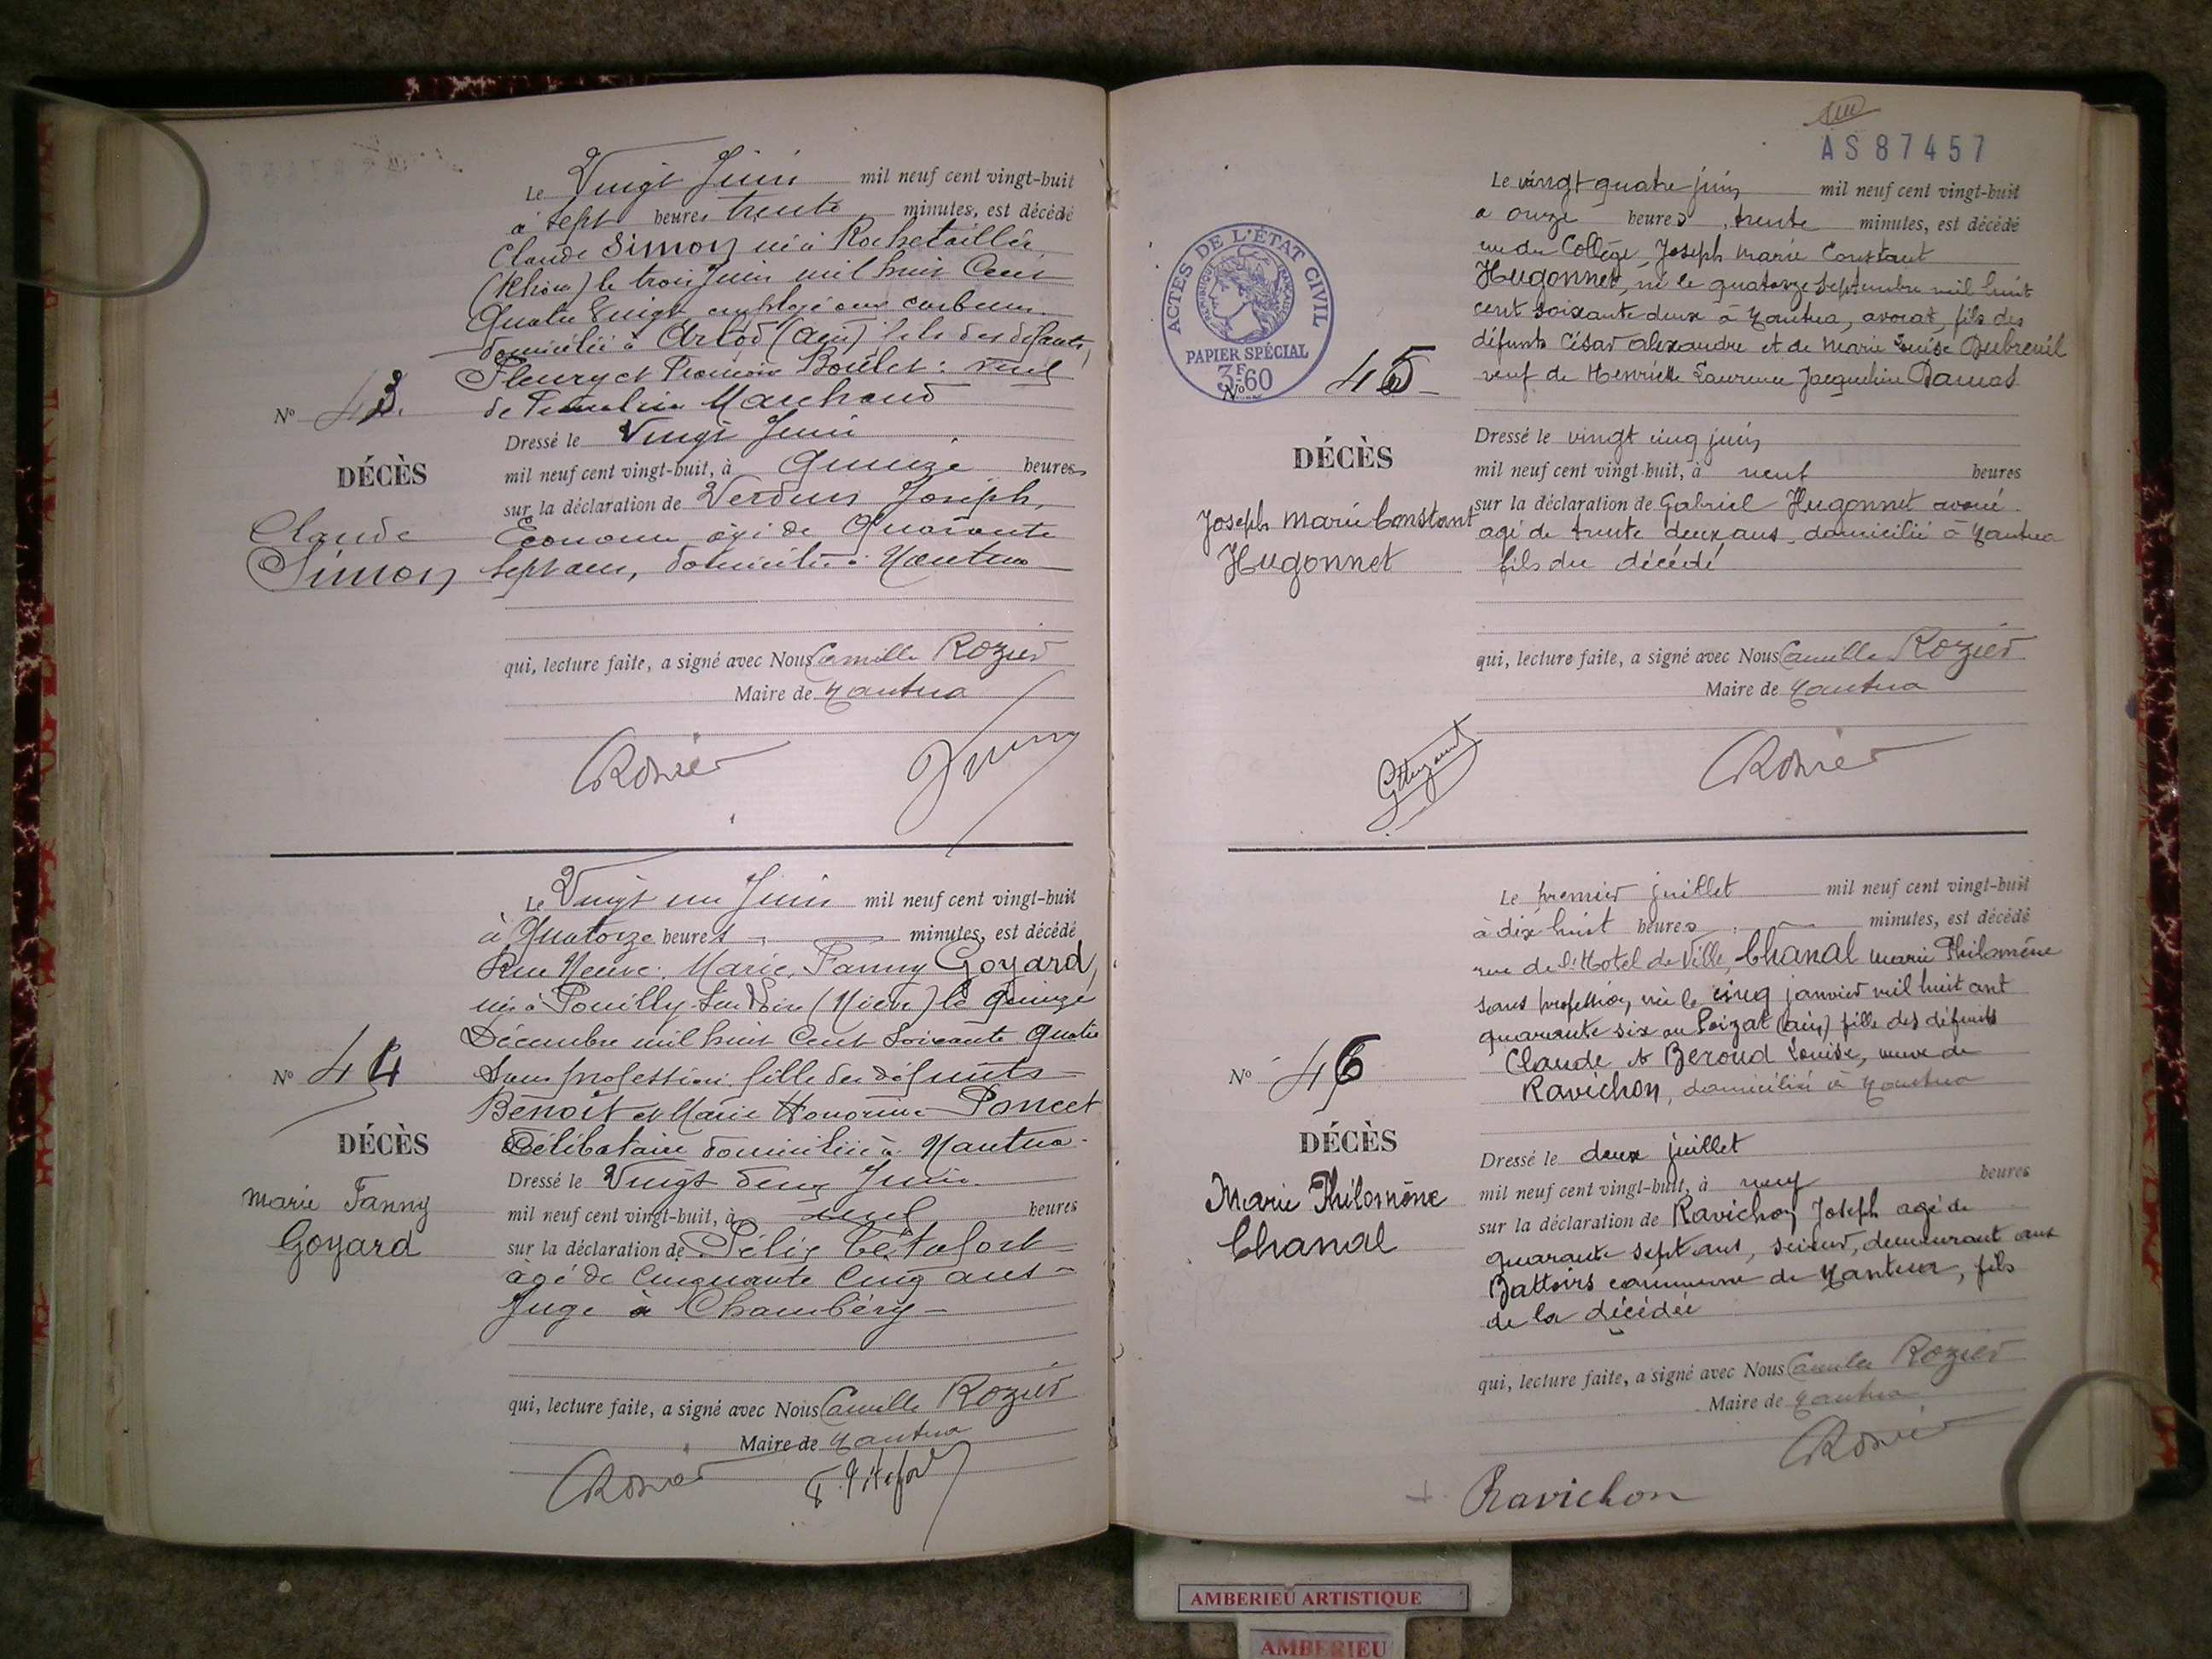 Le Vingt Juin mil neuf cent vingt-huit
à sept heures trente minutes, est décédé
Claude Simon né à Rochetaillée
(Rhône) le trois Juin mil huit Cent
Quatre Vingt employé aux carbures
domicilié à Arlod (Ain) fils des défunts,
Fleury et Boulet : veuf
de Marchand
Nº 43
DÉCÈS
Claude
Simon
Dressé le Vingt Juin
mil neuf cent vingt-huit, à Quinze heures
sur la déclaration de Verdun Joseph,
Econome âgé de Quarante
sept ans, domicilié à Nantua
qui, lecture faite, a signé avec Nous Camille Rozier
Maire de Nantua
CRozier
Le Vingt un Juin mil neuf cent vingt-huit
à Quatorze heures minutes, est décédé
Rue Neuve. Marie, Fanny Goyard,
née à Pouilly-sur Loire (Nièvre) le quinze
Décembre mil huit Cent Soixante Quatre
Sans profession fille des défunts
Benoît et Marie Honorine Poncet
Célibataire domiciliée à Nantua
Nº 44
DÉCÈS
Marie Fanny
Goyard
Dressé le Vingt deux Juin
mil neuf cent vingt-huit, à neuf heures
sur la déclaration de Félix Têtafort
âgé de Cinquante Cinq ans
Juge à Chambéry
qui, lecture faite, a signé avec Nous Camille Rozier
Maire de Nantua
CRozier
AS 87457
ACTES DE L'ÉTAT CIVIL
RÉPUBLIQUE FRANÇAISE
PAPIER SPÉCIAL
3F60
Le vingt quatre juin mil neuf cent vingt-huit
a onze heures, trente minutes, est décédé
rue du Collège, Joseph Marie Constant
Hugonnet, né le quatorze septembre mil huit
cent soixante deux à Nantua, avocat, fils des
défunts César Alexandre et de Marie Louise Dubreuil
veuf de Henriette Laurence Jacqueline Damas
Nº 45
DÉCÈS
Joseph Marie Constant
Hugonnet
Dressé le vingt cinq juin
mil neuf cent vingt-huit, à neuf heures
sur la déclaration de Gabriel Hugonnet avoué
agé de trente deux ans, domicilié à Nantua
fils du décédé
qui, lecture faite, a signé avec Nous Camille Rozier
Maire de Nantua
CRozier
Le premier juillet mil neuf cent vingt-huit
à dix huit heures minutes, est décédé
rue de l'Hotel de Ville, Chanal Marie Philomène
sans profession, née le cinq janvier mil huit cent
quarante six au Poizat (Ain) fille des défunts
Claude & Beroud Louise, veuve de
Ravichon, domiciliée à Nantua
Nº 46
DÉCÈS
Marie Philomène
Chanal
Dressé le deux juillet
mil neuf cent vingt-huit, à neuf heures
sur la déclaration de Ravichon Joseph agé de
quarante sept ans, scieur, demeurant aux
Battoirs commune de Nantua, fils
de la décédée
qui, lecture faite, a signé avec Nous Camille Rozier
Maire de Nantua
CRozier
Ravichon
AMBERIEU ARTISTIQUE
AMBERIEU